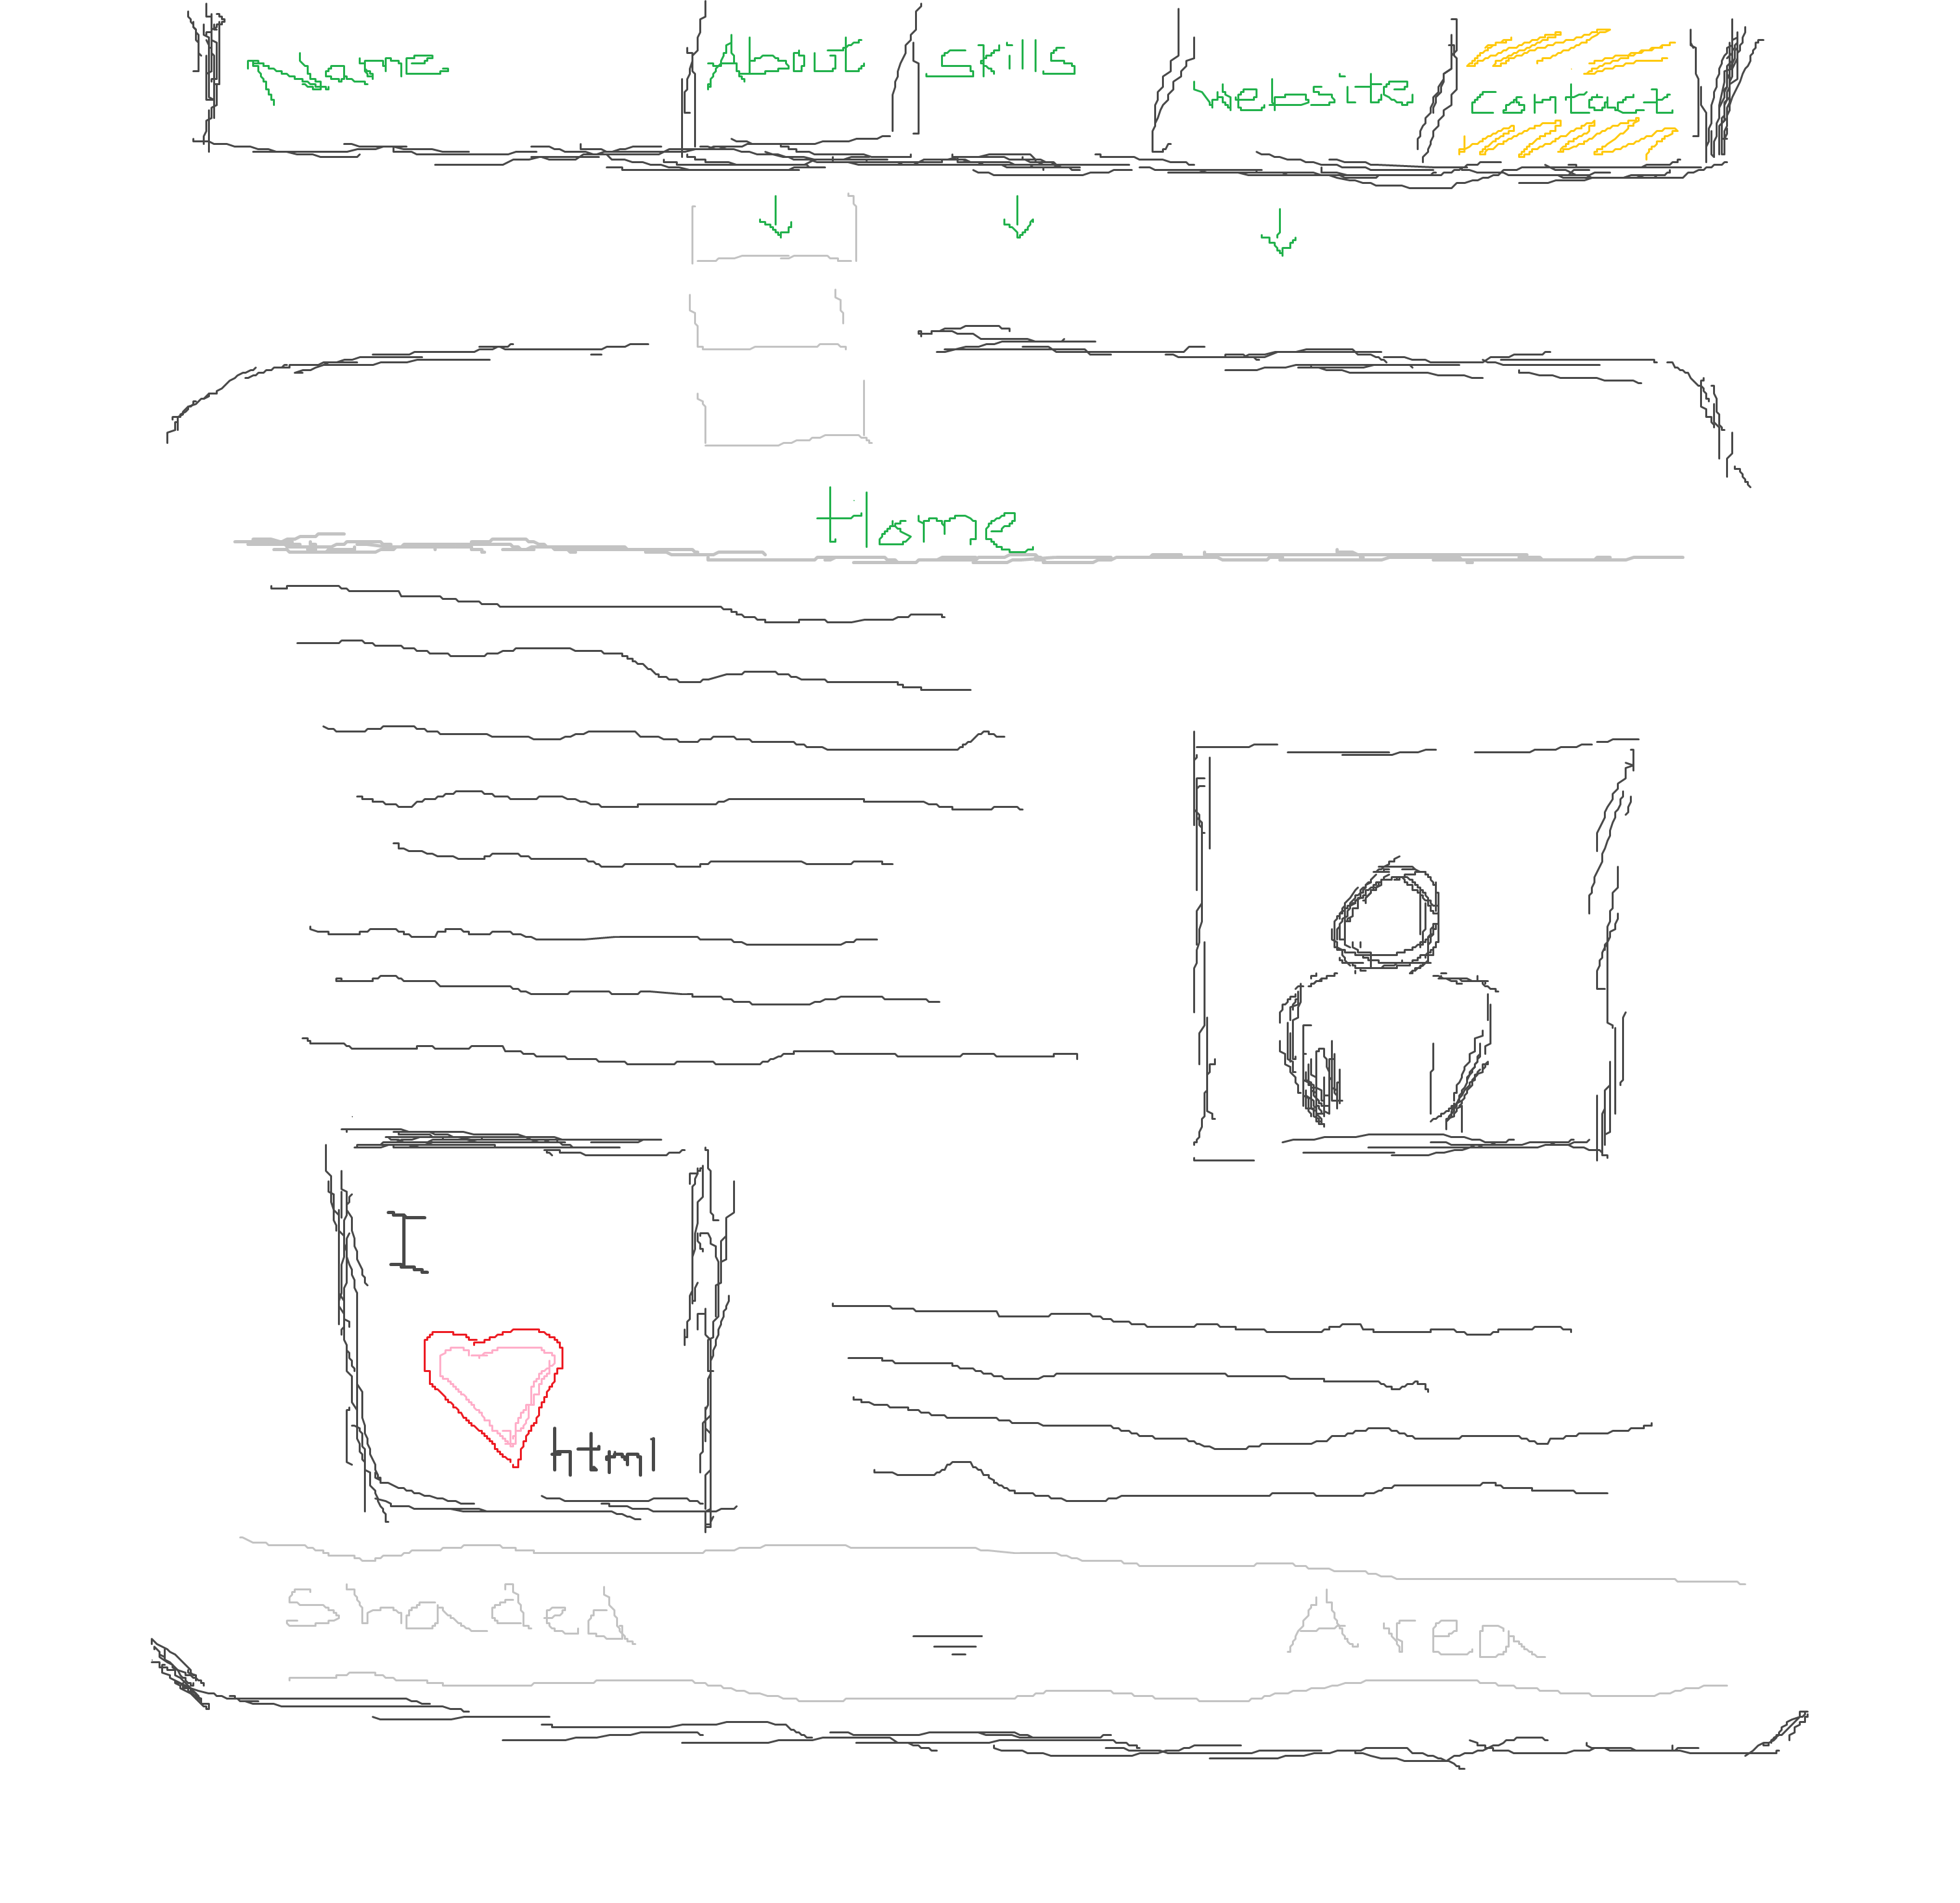 Name About skills website contact
Home
I
html
shaded Area